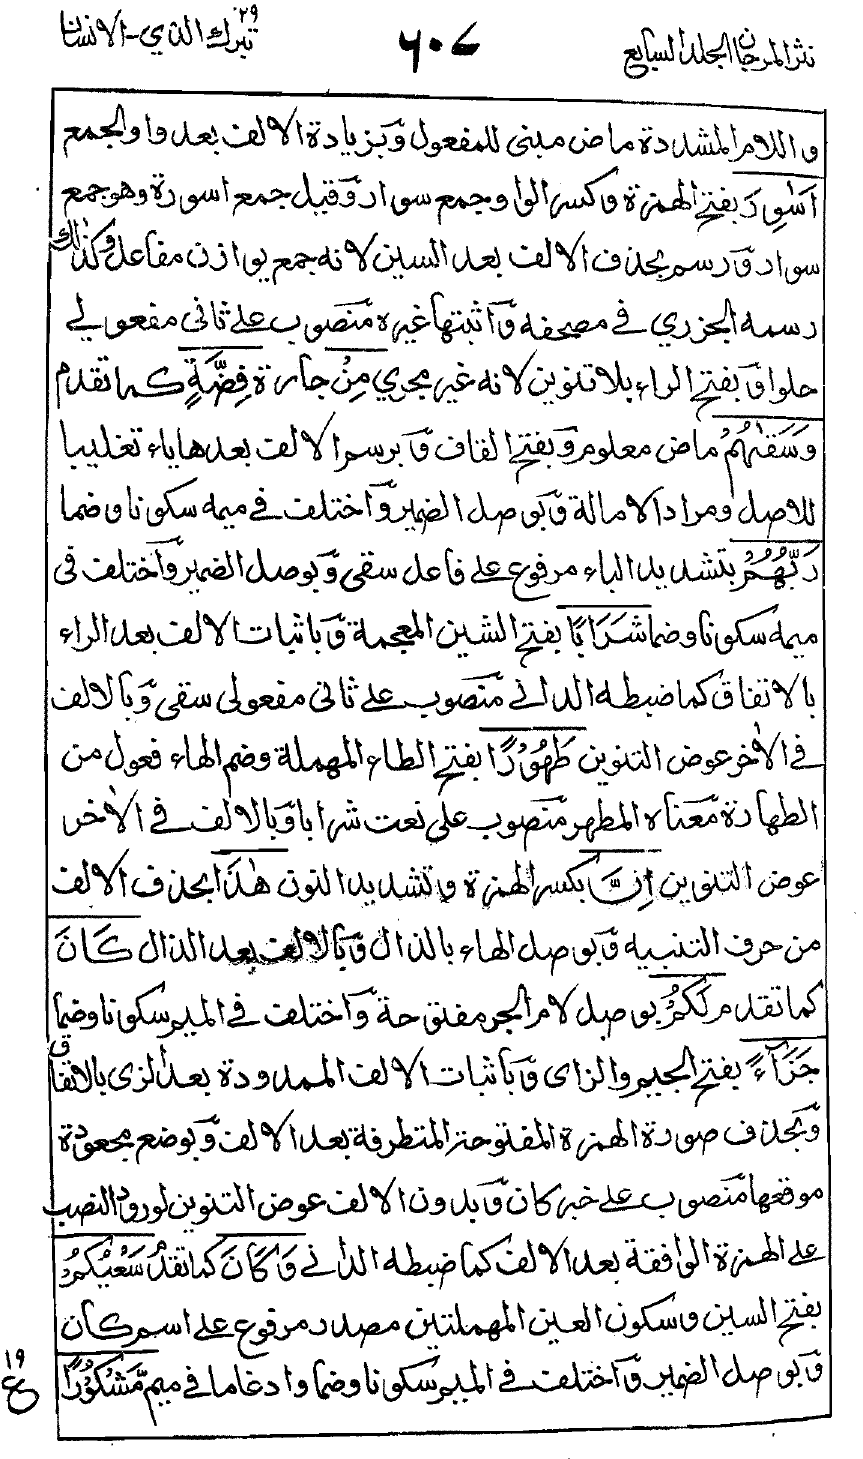 نثر المرجان الجلد السابع
٦٠٧
تبرك الذي ٢٩ - الانسان
واللام المشددة ماض مبنى للمفعول وبزيادة الالف بعد واو الجمع
اَسَاوِرَ بفتح الهمزة وكسر الواو جمع سوار وقيل جمع اسورة وهو جمع
سوار ورسم بحذف الالف بعد السين لانه جمع يوازن مفاعل وكذلك
رسمه الجزري في مصحفه واثبتها غيره منصوب على ثاني مفعولي
حلوا وبفتح الراء بلا تنوين لانه غير مجري مِنْ جارة فِضَّةٍ كما تقدم
وَسَقٰهُمْ ماض معلوم وبفتح القاف وبرسم الالف بعدها ياء تغليبا
للاصل ومراد الامالة وبوصل الضمير واختلف في ميمه سكونا وضما
رَبُّهُمْ بتشديد الباء مرفوع على فاعل سقى وبوصل الضمير واختلف فى
ميمه سكونا وضما شَرَابًا بفتح الشين المعجمة وباثبات الالف بعد الراء
بالاتفاق كما ضبطه الداني منصوب على ثانى مفعولى سقى وبالالف
في الاٰخر عوض التنوين طَهُوْرًا بفتح الطاء المهملة وضم الهاء فعول من
الطهارة معناه المطهر منصوب على نعت شرابا وبالالف في الاٰخر
عوض التنوين اِنَّ بكسر الهمزة وتشديد النون هٰذَا بحذف الالف
من حرف التنبيه وبوصل الهاء بالذال وبالالف بعد الذال كَانَ
كما تقدم لَكُمْ بوصل لام الجر مفتوحة واختلف في الميم سكونا وضما
جَزَآءً بفتح الجيم والزاى وباثبات الالف الممدودة بعد الزى بالاتفاق
وبحذف صورة الهمزة المفتوحة المتطرفة بعد الالف وبوضع مجعودة
موقعها منصوب على خبر كان وبدون الالف عوض التنوين لورود النصب
على الهمزة الواقعة بعد الالف كما ضبطه الدانى وَكَانَ كما تقدم سَعْيُكُمْ
بفتح السين وسكون العين المهملتين مصدر مرفوع على اسم كان
وبوصل الضمير واختلف في الميم سكونا وضما وادغاما في ميم مَّشْكُوْرًا
١٩
ع